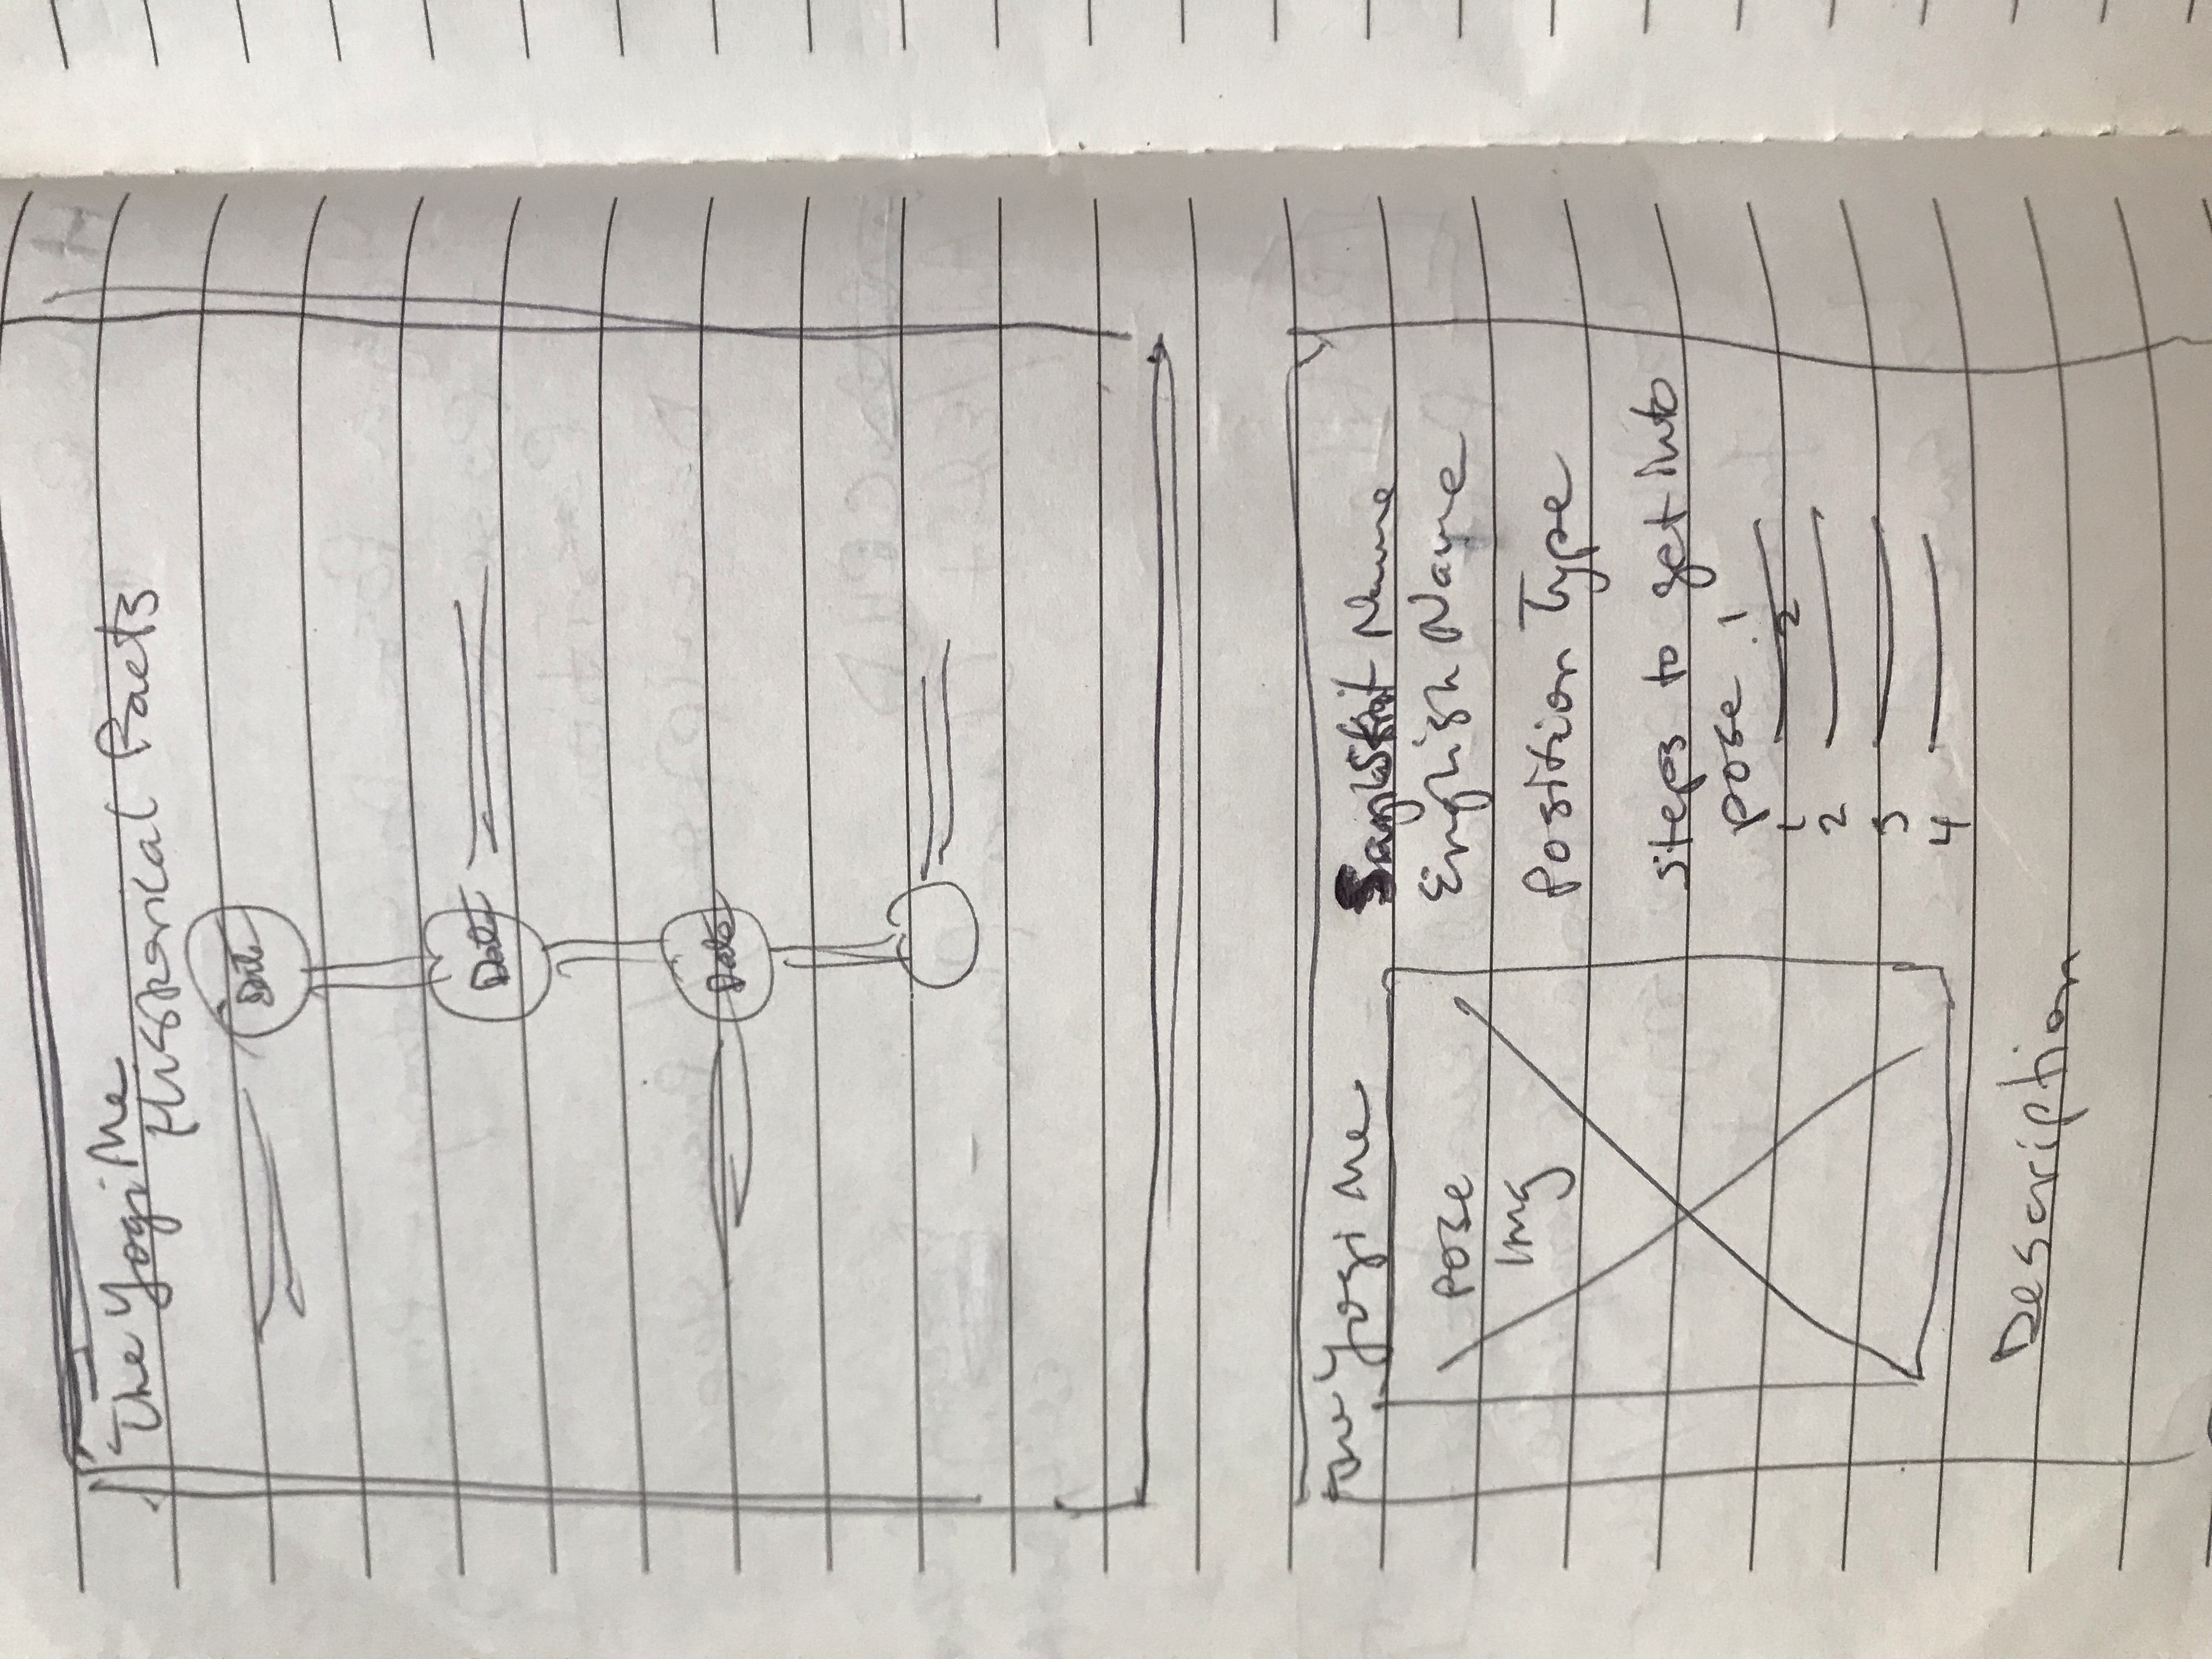 The Yogi Me
Historical Facts
Date
Date
Date
The Yogi Me
pose
img
Sanskrit Name
English Name
Position Type
steps to get into
pose .1
1 2
2
3
4
Description